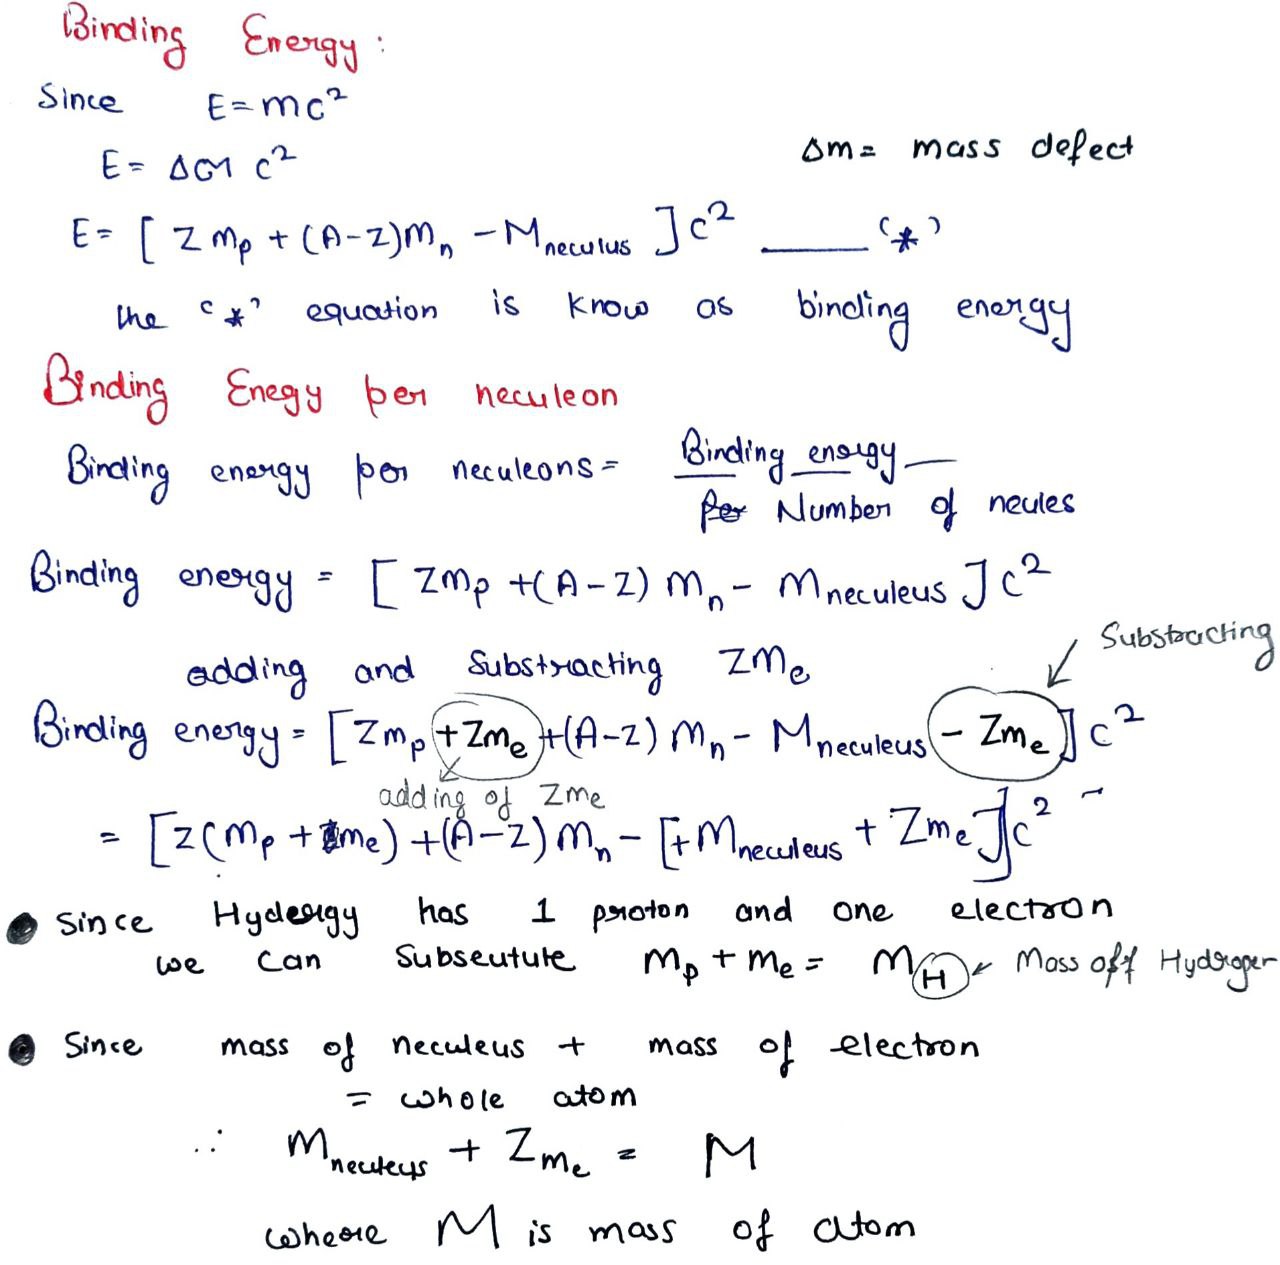 Binding Energy:
Since E = mc²
E = Δm c²
Δm = mass defect
E = [ Z mp + (A-Z)mn - Mneculus ] c² ____ '*'
the '*' equation is know as binding energy
Binding Enegy per neculeon
Binding energy per neculeons = Binding energy
Per Number of neules
Binding energy = [ Zmp + (A-Z) mn - Mneculeus ] c²
Substracting
adding and Substracting Zme
Binding energy = [ Zmp + Zme + (A-Z) mn - Mneculeus - Zme ] c²
adding of Zme
= [Z(mp + me) + (A-Z) mn - [+Mneculeus + Zme]]c²
Since Hydergy has 1 proton and one electron
we can Subseutute mp + me = MH ← Mass off Hydrogen
Since mass of neculeus + mass of electron
= whole atom
∴ Mneculeus + Zme = M
where M is mass of atom